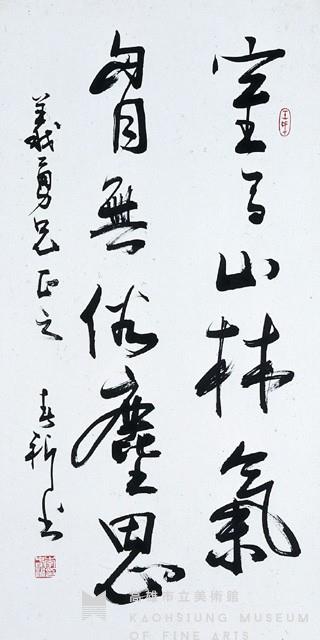 室有山林氣
胷無俗塵思
義勇兄正之
書
高雄市立美術館
KAOHSIUNG MUSEUM
OF FINE ARTS